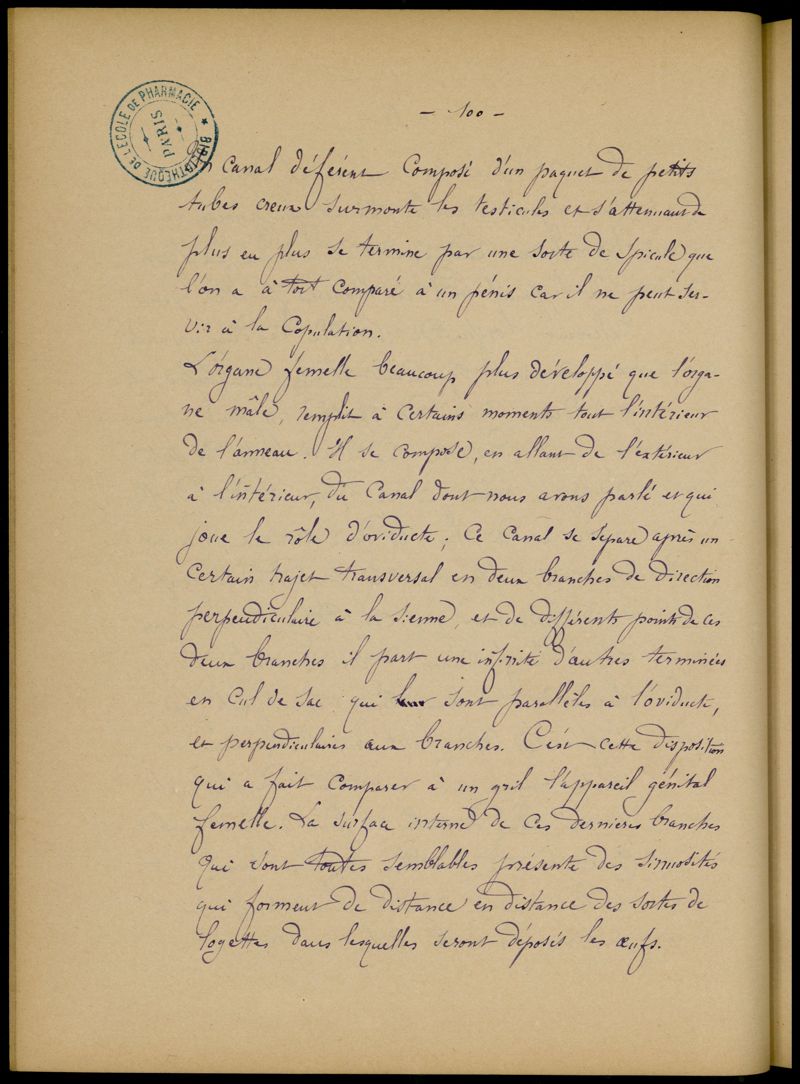 - 100 -
BIBLIOTHÈQUE DE L'ÉCOLE DE PHARMACIE * PARIS
Un Canal déférent Composé d'un paquet de petits
tubes creux surmonte les testicules et s'attenuant de
plus en plus se termine par une sorte de spicule que
l'on a à tort Comparé à un pénis car il ne peut ser-
vir à la Copulation.
L'organe femelle beaucoup plus développé que l'orga-
ne mâle, remplit à certains moments tout l'intérieur
de l'anneau. Il se compose, en allant de l'extérieur
à l'intérieur, du Canal dont nous avons parlé et qui
joue le rôle d'oviducte; Ce Canal se separe après un
certain trajet transversal en deux branches de direction
perpendiculaire à la sienne, et de différents points de ces
deux branches il part une infinité d'autres terminées
en Cul de sac qui sont parallèles à l'oviducte,
et perpendiculaires aux branches. C'est cette disposition
qui a fait comparer à un gril l'appareil génital
femelle. La surface interne de ces dernieres branches
qui sont toutes semblables présente des sinuosités
qui forment de distance en distance des sortes de
logettes dans lesquelles seront déposés les œufs.